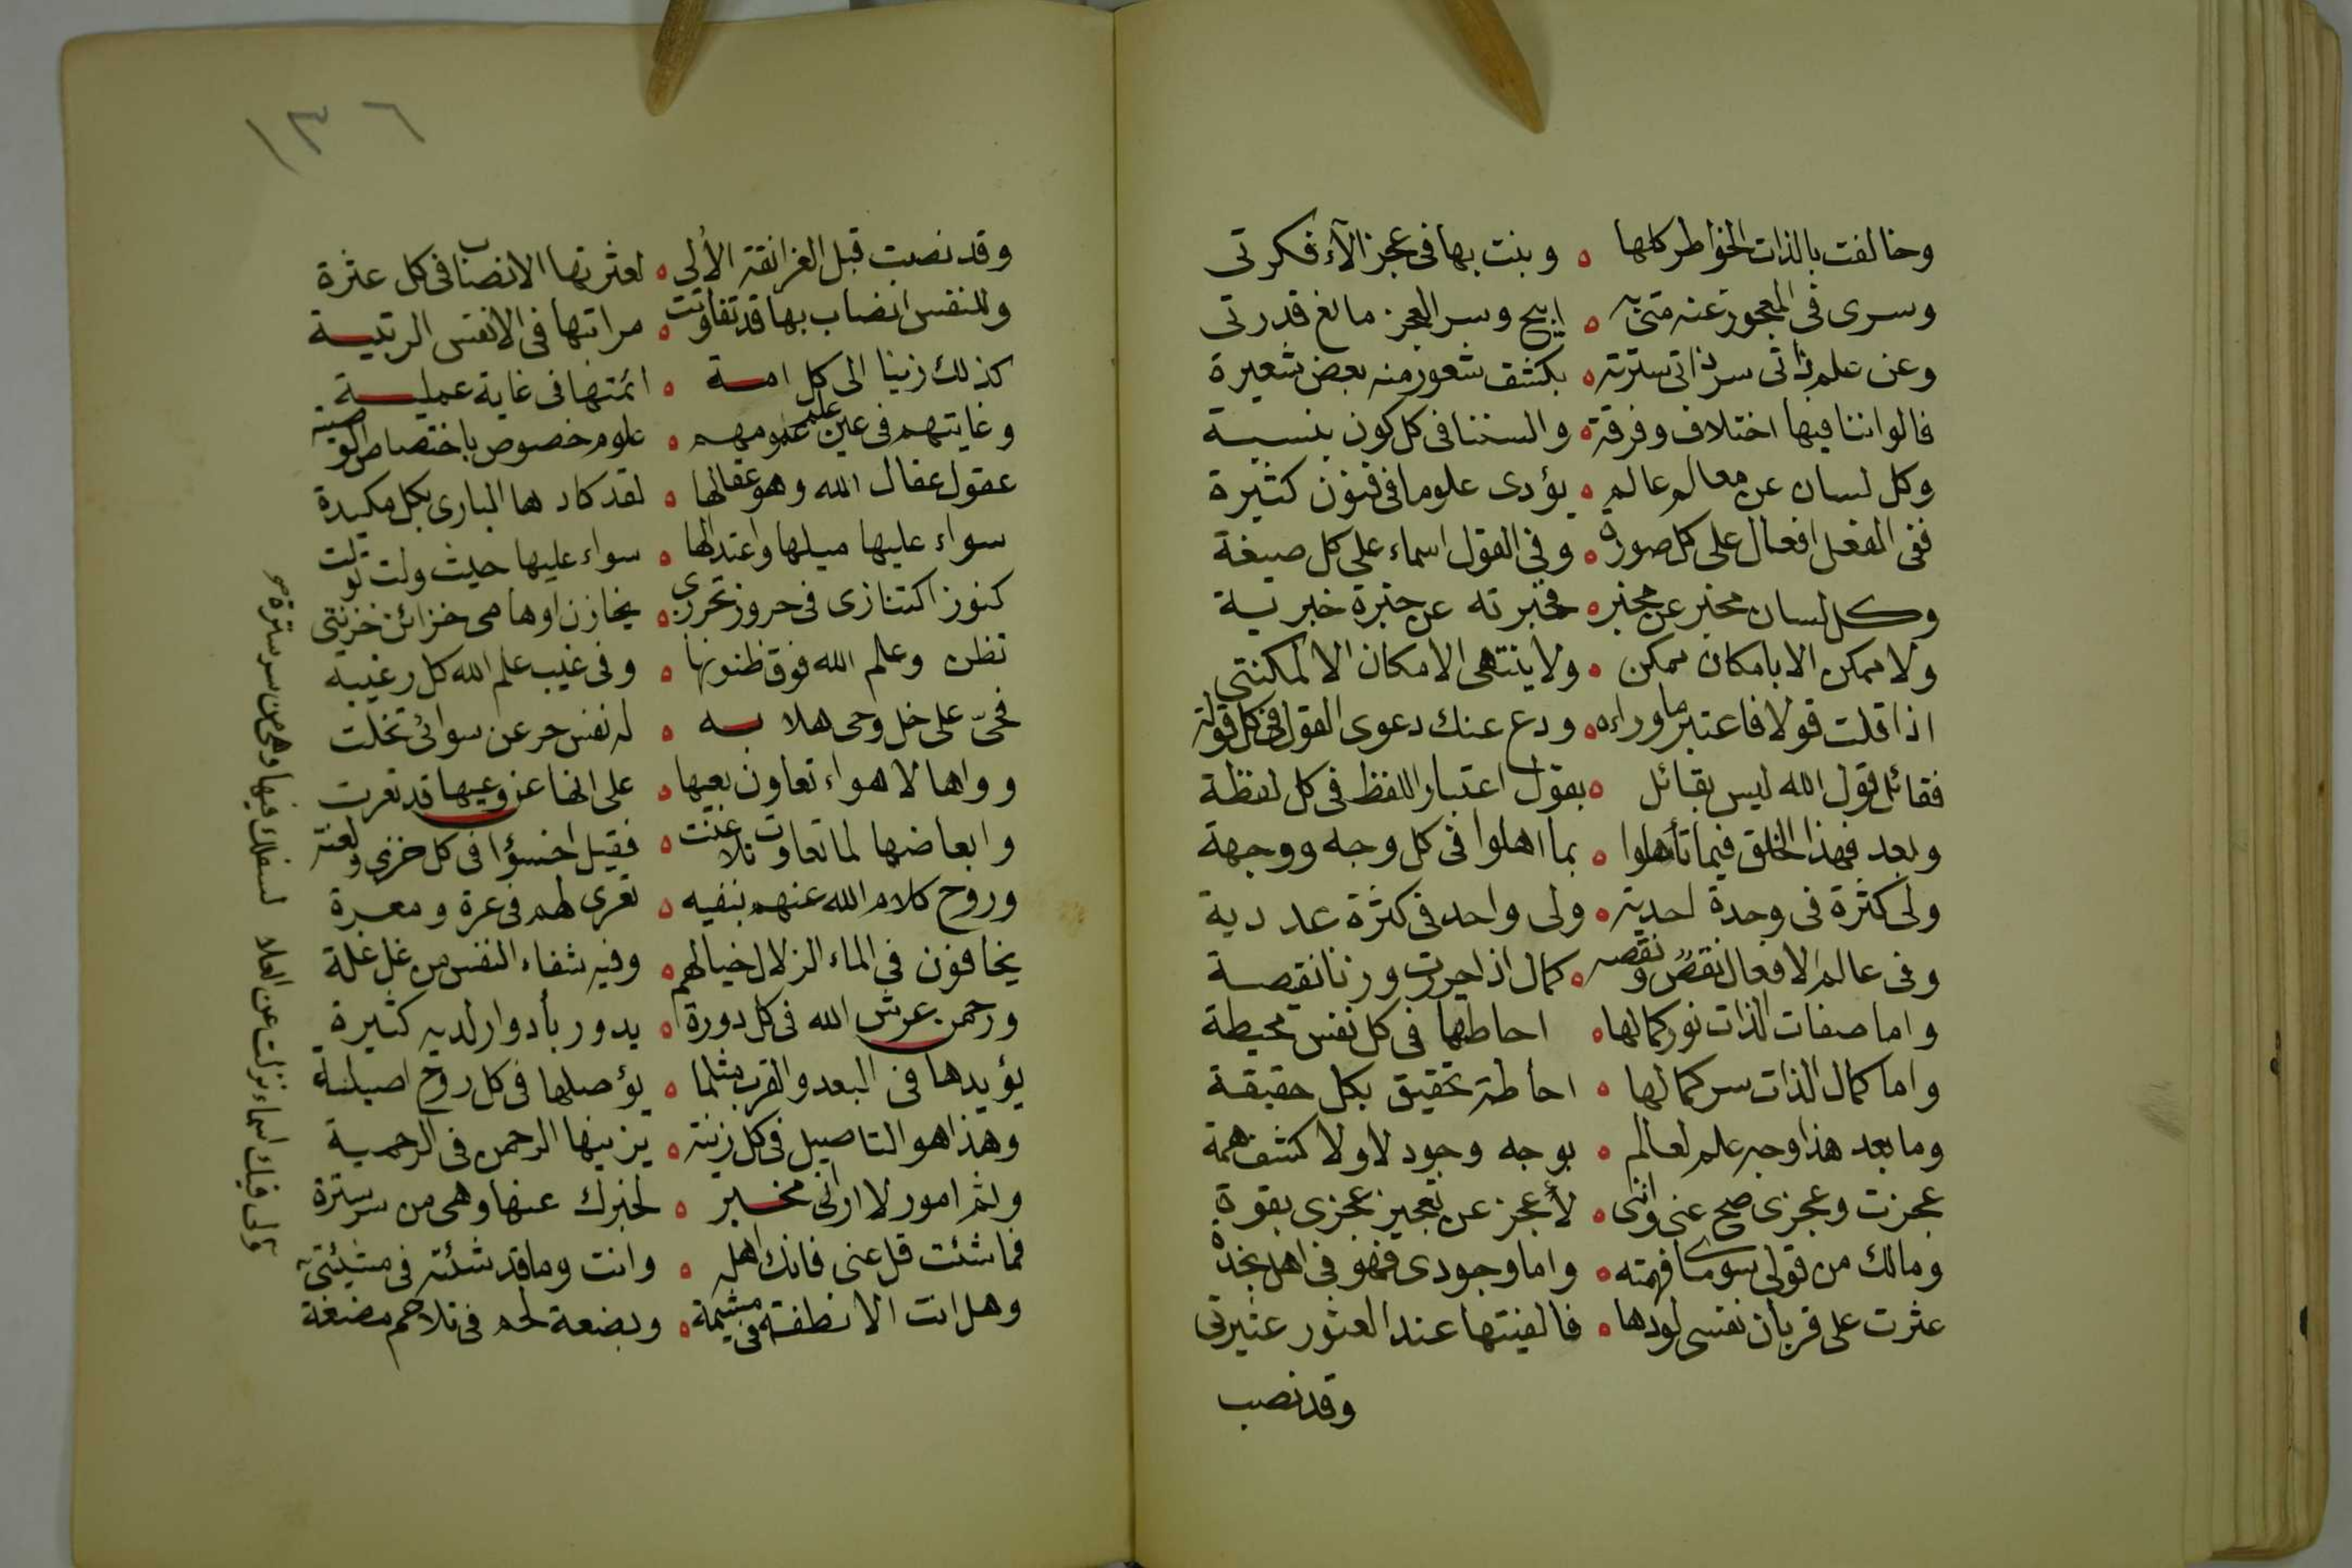 وخالفت بالذات الخواطر كلها ه وبنت بها فى عجز الآء فكرتى
وسرى فى المعجوز عنه متى به ه ابيح وسر العجز مانع قدرتى
وعن علم ذاتى سر ذاتى سترته ه بكشف شعور منه بعض شعيرة
فالواننا فيها اختلاف وفرقة ه والسننا فى كل كون بنسبة
وكل لسان عن معالم عالم ه يؤدى علوما فى فنون كثيرة
ففى الفعل افعال على كل صورة ه وفى القول اسماء على كل صيغة
وكل لسان مخبر عن مخبر ه فخبرته عن خبرة خبرية
ولا يمكن الا بامكان ممكن ه ولا ينتهى الامكان الا لمكنتى
اذا قلت قولا فاعتبر ما وراءه ه ودع عنك دعوى القول فى كل قولة
فقائل قول الله ليس بقائل ه بقول اعتبار اللفظ فى كل لفظة
وبعد فهذا الخلق فيما تأهلوا ه بما اهلوا فى كل وجه ووجهة
ولى كثرة فى وحدة احدية ه ولى واحد فى كثرة عددية
وفى عالم الافعال نقص ونقصه ه كمال اذا حررت وزنا نقصة
واما صفات الذات نور كمالها ه احاطها فى كل نفس محيطة
واما كمال الذات سر كمالها ه احاطة تحقيق بكل حقيقة
وما بعد هذا وجه علم لعالم ه بوجه وجود لا ولا كشف همة
عجزت وعجزى صح عنى واننى ه لأعجز عن تعجيز عجزى بقوة
ومالك من قولى سوى ما فهمته ه واما وجودى فهو فى اهل نجدة
عثرت على قربان نفسى لودها ه فالفيتها عند العثور عثيرتى
وقد نصب
١٣٦
وقد نصبت قبل الغرانقة الألى ه لعثرتها الانصاب فى كل عثرة
وللنفس انصاب بها قد تفاوتت ه مراتبها فى الانفس الرتبية
كذلك زينا الى كل امة ه ائمتها فى غاية عملية
وغايتهم فى عين علم عمومهم ه علوم خصوص باختصاص الوصية
عقول عقال الله وهو عقالها ه لقد كادها البارى بكل مكيدة
سواء عليها ميلها واعتدالها ه سواء عليها حيث ولت تولت
كنوز اكتنازى فى حروز تحررى ه بخازن اوهامى خزائن خزنتى
تظن وعلم الله فوق ظنونها ه وفى غيب علم الله كل رغيبه
فحىّ على خل وحى هلا به ه له نفس حر عن سوائى تخلت
وواها لاهواء تعاون بعيها ه على انها عن وعيها قد تعرت
وابعاضها لما تعاوت تلاعنت ه فقيل اخسؤا فى كل خزى ولعنة
وروح كلام الله عنهم بنفيه ه تعرى لهم فى عرة ومعرة
يخافون فى الماء الزلال خيالهم ه وفيه شفاء النفس من غل غلة
ورحمن عرش الله فى كل دورة ه يدور بأدوار لديه كثيرة
يؤيدها فى البعد والقرب مثلما ه يؤصلها فى كل روح اصيلة
وهذا هو التاصيل فى كل زينة ه يزينها الرحمن فى الرحمية
وثم امور لا ارانى مخبر ه لخبرك عنها وهى من سر سترة
فما شئت قل عنى فانك اهله ه وانت وما قد شئته فى مشيئتى
وهل انت الا نطفة فى مشيمة ه وبضعة لحم فى تلاحم مضغة
ولى فيك اسماء نزلت عن العلا لسفلك فيها وهى من سر سترة